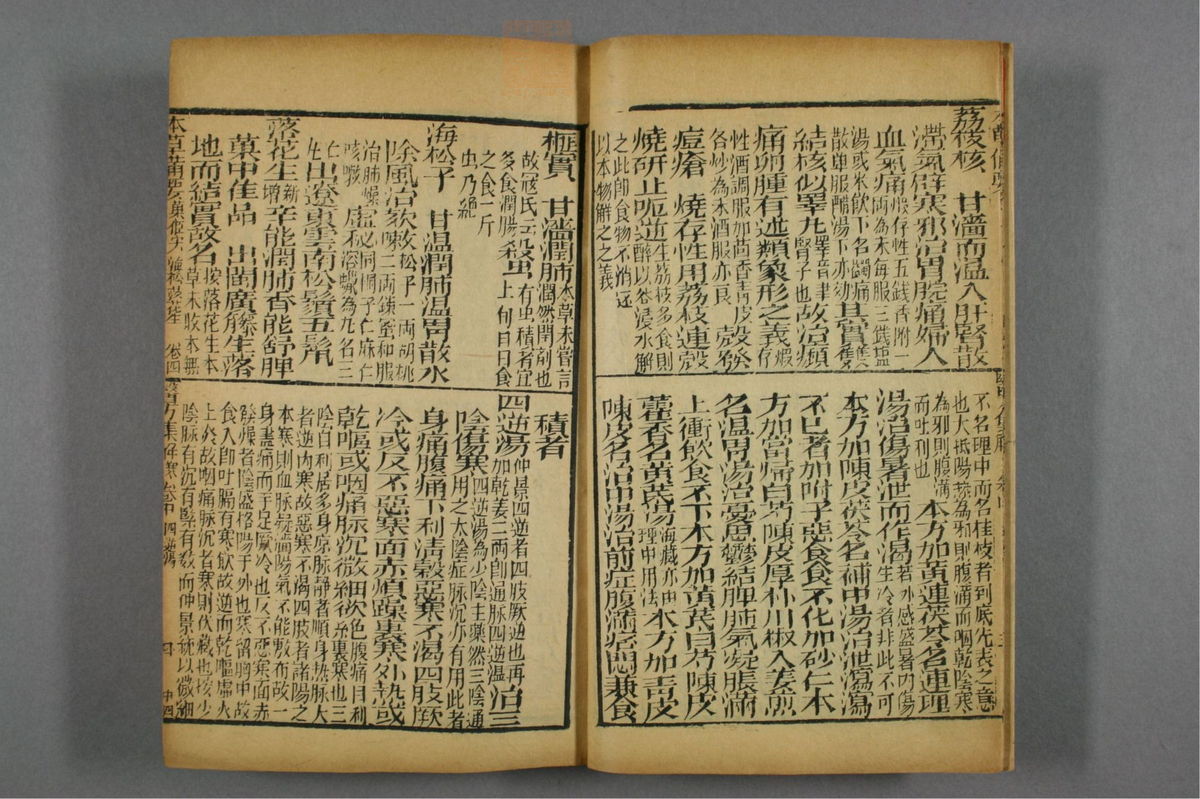 荔枝核　甘濇而溫入肝腎散
滯氣辟寒邪治胃脘痛婦人
血氣痛煆存性五錢香附一
兩為末每服三錢鹽
湯或米飲下名蠲痛
散單服醋湯下亦効其實雙
結核似睪丸睪音皋腎子也故治㿗
疝卵腫有述類象形之義煆存
性酒調服加茴香青皮
各炒為末酒服亦良　殼發
痘瘡　燒存性用荔枝連殼
燒研止呃逆生荔枝多食則
醉以殼浸水解
之此即食物不消還
以本物解之之義
不名理中而名桂枝者到底先表之意
也大抵陽邪為邪則腹滿而咽乾陰寒
為邪則腹滿
而吐利也　本方加黃連茯苓名連理
湯治傷暑泄而作渴若外感盛者內傷
生冷者非此不可
本方加陳皮茯苓名補中湯治泄瀉瀉
不已者加附子惡食食不化加砂仁本
方加當歸白芍陳皮厚朴川椒入姜煎
名溫胃湯治憂思鬱結脾肺氣凝脹滿
上衝飲食不下本方加黃芪白芍陳皮
藿香名黃芪湯海藏亦由
理中用法本方加青皮
陳皮名治中湯治前症腹滿痞悶兼食
榧實　甘濇潤肺本草未嘗言
潤然潤劑也
故寇氏云
多食潤腸殺虫有虫積者宜
上旬日日食
之食一斤
虫乃絕
海松子　甘溫潤肺溫胃散水
除風治欬嗽松子一兩胡桃
二兩鍊蜜和服
治肺燥
咳嗽　虛秘同栢子仁麻仁
溶蠟為丸名三
仁
丸出遼東雲南松鬚五鬣
落花生新增辛能潤肺香能舒脾
菓中佳品　出閩廣籐生落
地而結實故名按落花生本
草未收本無
本草備要　海松子　落花生　卷四
積者
四逆湯仲景四逆者四肢厥逆也再
加乾姜二兩即通脈四逆湯治三
陰傷寒四逆湯為少陰主藥然三陰通
用之太陰症脈沉亦有用此者
身痛腹痛下利清穀惡寒不渴四肢厥
冷或反不惡寒面赤煩躁裏寒外熱或
乾嘔或咽痛脈沉微細欲絕
者逆內寒故惡寒不渴四肢者諸陽之
本寒則血脈凝濇陽氣不能敷布故一
身盡痛而手足厥冷也反不惡寒面赤
煩燥者陰盛格陽于外也寒留胸中故
食入即吐膈有寒飲故逆而乾嘔虛火
上炎故咽痛脈沉者寒則伏藏也按少
陰脈有沉數有緊有數而仲景統以微細
醫方集解　寒　卷中　四逆湯